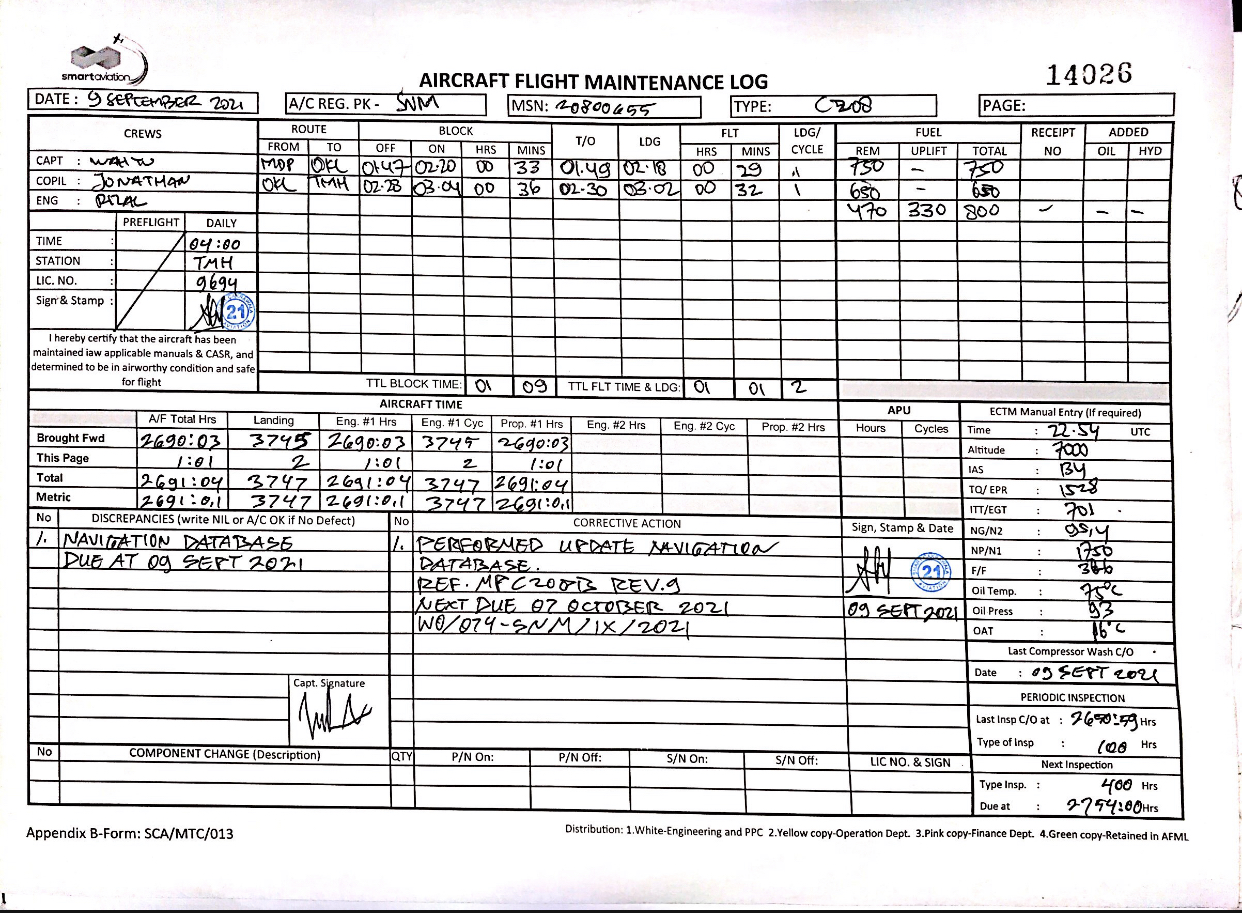 smartaviation
AIRCRAFT FLIGHT MAINTENANCE LOG
14026
DATE : 9 SEPTEMBER 2021
A/C REG. PK - SNM
MSN: 20800655
TYPE: C208
PAGE:
CREWS ROUTE BLOCK T/O LDG FLT LDG/ CYCLE FUEL RECEIPT NO ADDED
FROM TO OFF ON HRS MINS HRS MINS REM UPLIFT TOTAL OIL HYD
CAPT : WAHYU MDP OKL 01:47 02:20 00 33 01.49 02.18 00 29 1 750 - 750
COPIL : JONATHAN OKL TMH 02:28 03:04 00 36 02-30 03-02 00 32 1 650 - 650
ENG : 470 330 800 - -
PREFLIGHT DAILY
TIME : 04:00
STATION : TMH
LIC. NO. : 9694
Sign & Stamp : 21
I hereby certify that the aircraft has been
maintained iaw applicable manuals & CASR, and
determined to be in airworthy condition and safe
for flight
TTL BLOCK TIME: 01 09 TTL FLT TIME & LDG: 01 01 2
AIRCRAFT TIME
A/F Total Hrs Landing Eng. #1 Hrs Eng. #1 Cyc Prop. #1 Hrs Eng. #2 Hrs Eng. #2 Cyc Prop. #2 Hrs
Brought Fwd 2690:03 3745 2690:03 3745 2690:03
This Page 1:01 2 1:01 2 1:01
Total 2691:04 3747 2691:04 3747 2691:04
Metric 2691:0,1 3747 2691:0,1 3747 2691:0,1
APU
Hours Cycles
ECTM Manual Entry (If required)
Time : 22.54 UTC
Altitude : 7000
IAS :
TQ/ EPR : 1528
ITT/EGT : 701
NG/N2 : 95,4
NP/N1 : 1750
F/F :
Oil Temp. : 75°C
Oil Press : 93
OAT : 16°C
Last Compressor Wash C/O
Date : 09 SEPT 2021
PERIODIC INSPECTION
Last Insp C/O at : Hrs
Type of Insp : 100 Hrs
Next Inspection
Type Insp. : 400 Hrs
Due at : 2754:00 Hrs
No DISCREPANCIES (write NIL or A/C OK if No Defect) No CORRECTIVE ACTION Sign, Stamp & Date
1. NAVIGATION DATABASE
DUE AT 09 SEPT 2021
1. PERFORMED UPDATE NAVIGATION
DATABASE.
REF. MPC208B REV.9
NEXT DUE 07 OCTOBER 2021
WO/074-SNM/IX/2021
21
09 SEPT 2021
Capt. Signature
No COMPONENT CHANGE (Description) QTY P/N On: P/N Off: S/N On: S/N Off: LIC NO. & SIGN
Appendix B-Form: SCA/MTC/013
Distribution: 1.White-Engineering and PPC 2.Yellow copy-Operation Dept. 3.Pink copy-Finance Dept. 4.Green copy-Retained in AFML